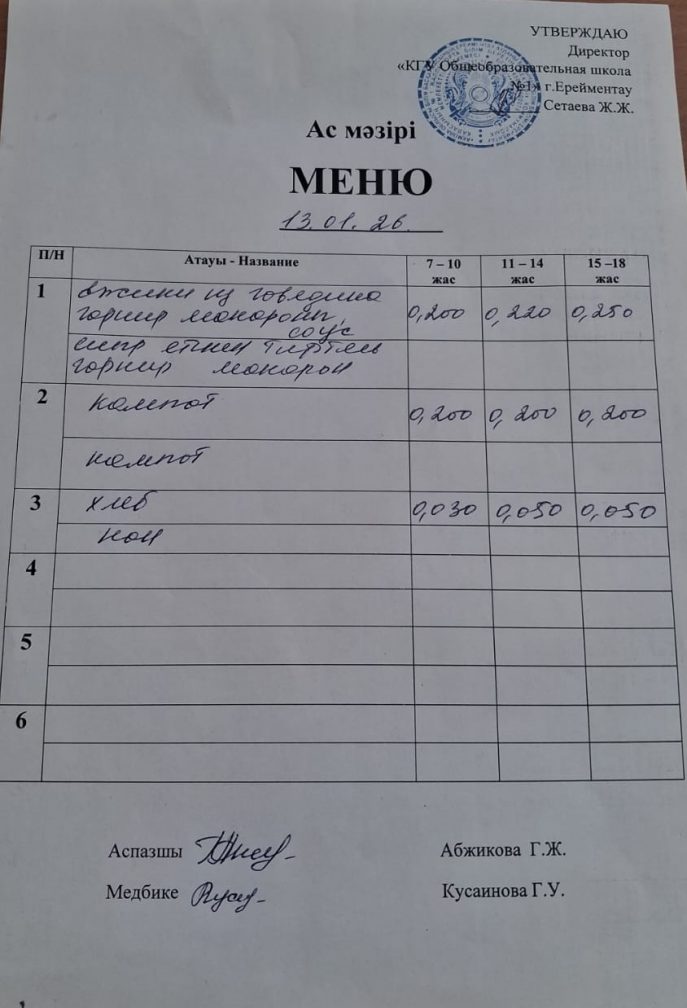 УТВЕРЖДАЮ
Директор
«КГУ Общеобразовательная школа
№1» г.Ерейментау
Сетаева Ж.Ж.
Ас мәзірі
МЕНЮ
13.01.26.
П/Н Атауы - Название 7 – 10 жас 11 – 14 жас 15 –18 жас
1 из говядина
горнир макороны, 0,200 0,220 0,250
соус
сиыр етінен
горнир макорон
2 компот 0,200 0,200 0,200
компот
3 хлеб 0,030 0,050 0,050
нан
4
5
6
Аспазшы Абжикова Г.Ж.
Медбике Кусаинова Г.У.